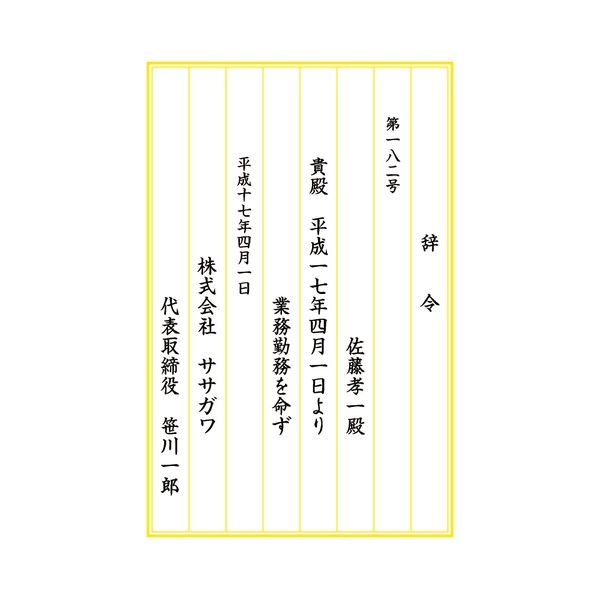 辞令
第一八二号
佐藤孝一殿
貴殿　平成一七年四月一日より
業務勤務を命ず
平成十七年四月一日
株式会社　ササガワ
代表取締役　笹川一郎